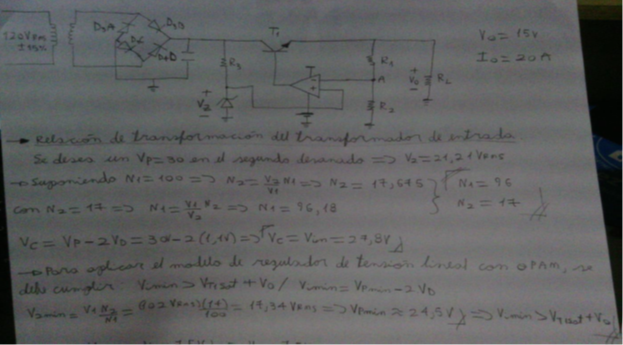 120VRMS
±15%
D2A
D2B
D2C
D2D
T1
R3
R1
VZ
A
R2
V0
RL
V0 = 15V
I0 = 20A
→ Relación de transformación del transformador de entrada
Se desea un VP=30 en el segundo devanado => V2=21,21VRMS
→ Suponiendo N1=100 => N2=V2/V1 N1 => N2=17,675 } N1=96
con N2=17 => N1=V1/V2 N2 => N1=96,18 } N2=17
VC = VP-2VD = 30-2(1,1V) => VC=Vin=27,8V
→ Para aplicar el modelo de regulador de tensión lineal con OPAM, se
debe cumplir: Vinmin > VT1sat + V0 / Vinmin = VPmin-2VD
V2min = V1 N2/N1 = (102VRMS)(17)/100 = 17,34VRMS => VPmin ≈ 24,5V => Vinmin > VT1sat+V0